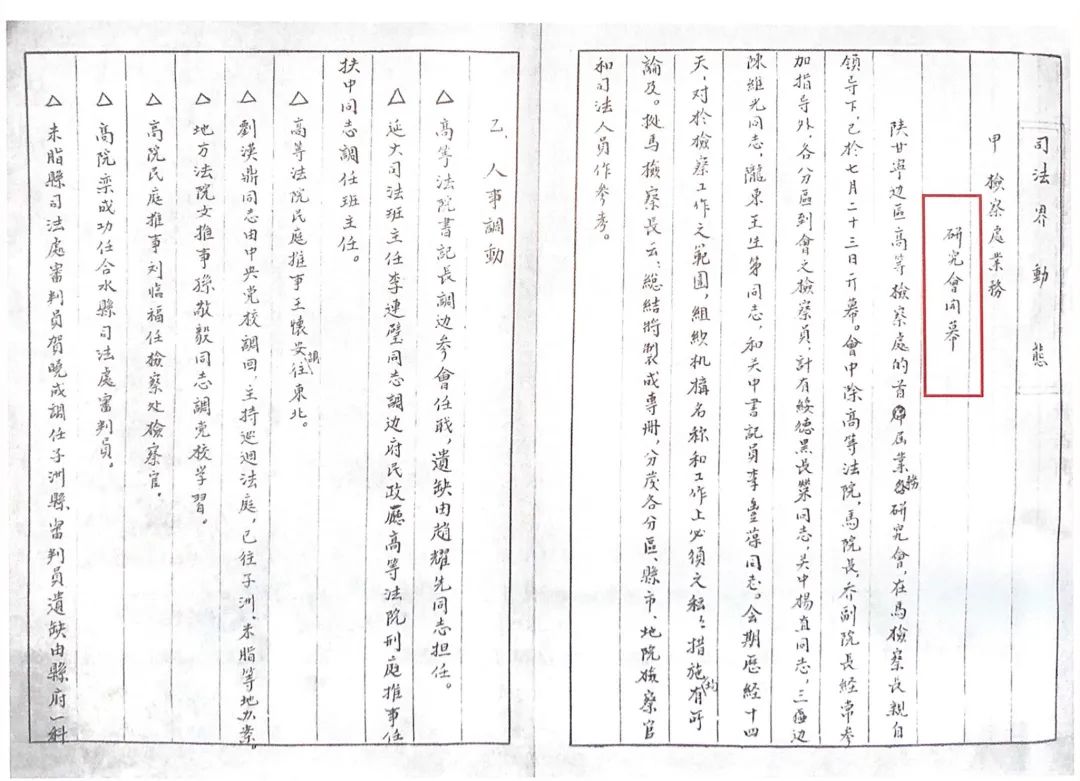 司法界動態
甲 檢察處業務
研究會開幕
陕甘寧边區高等檢察處的首屆業務研究會,在馬檢察長親自
領导下,已於七月二十三日开幕。會中除高等法院,馬院長,乔副院長經常參
加指导外,各分區到會之檢察員,計有綏德吴長榮同志,关中楊直同志,三边边
陳維光同志,隴東王生第同志,和关中書記員李豊葆同志。会期歷經十四
天,对於檢察工作之範圍,組织机構名称和工作上必須之私々措施均有所
論及。拠馬檢察長云:總結將製成專冊,分发各分區縣市、地院檢察官
和司法人員作參考。
乙、人事調動
△ 高等法院書記長調边参會任职,遺缺由趙耀先同志担任。
△ 延大司法班主任李連璧同志調边府民政廳高等法院刑庭推事任
扶中同志調任班主任。
△ 高等法院民庭推事王懷安調往東北。
△ 劉漢鼎同志由中央党校調回,主持巡迴法庭,已往子洲、米脂等地办案。
△ 地方法院文推事孫敬毅同志調党校学習。
△ 高院民庭推事刘临福任檢察处檢察官,
△ 高院栾成功任合水縣司法處審判員。
△ 米脂縣司法處審判員賀曉成調任子洲縣審判員遺缺由縣府一科